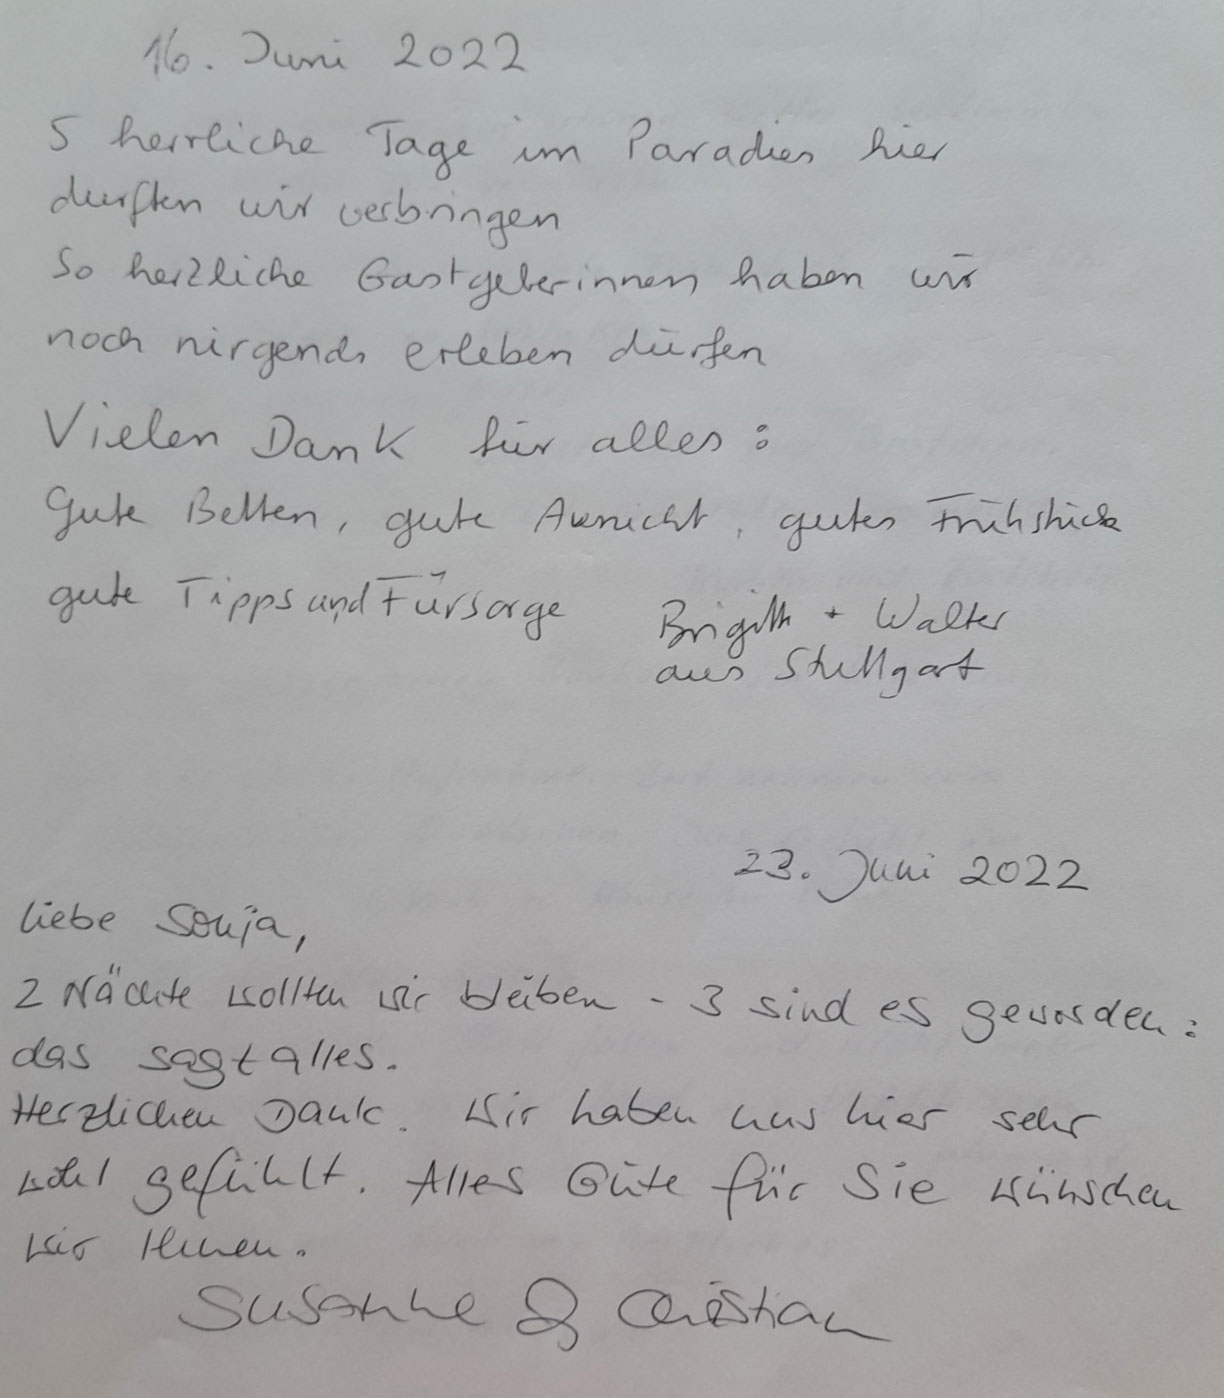 16. Juni 2022
5 herrliche Tage im Paradies hier
durften wir verbringen
So herzliche Gastgeberinnen haben wir
noch nirgends erleben dürfen
Vielen Dank für alles :
Gute Betten, gute Aussicht, gutes Frühstück
gute Tipps und Fürsorge
Brigitte + Walter
aus Stuttgart
23. Juni 2022
liebe Sonja,
2 Nächte wollten wir bleiben - 3 sind es geworden :
das sagt alles.
Herzlichen Dank. Wir haben uns hier sehr
wohl gefühlt. Alles Gute für Sie wünschen
wir Ihnen.
Susanne & Christian